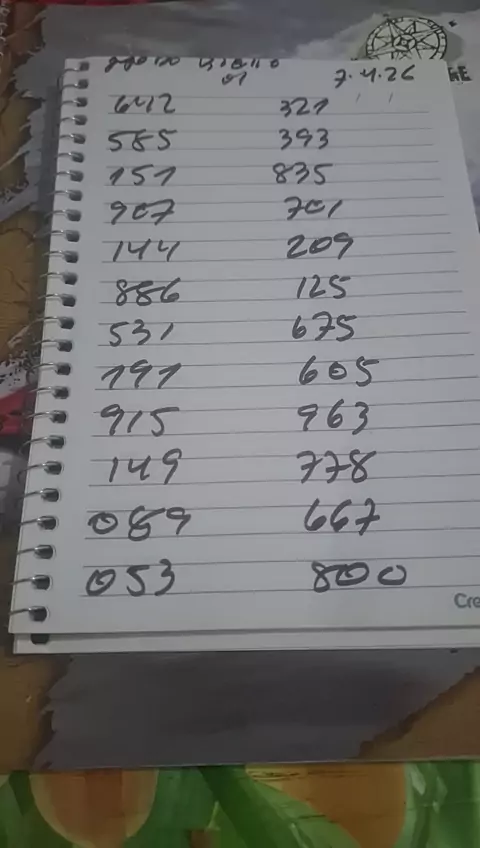 01 7.4.26
642 321
585 393
151 835
907 701
144 209
886 125
531 675
191 605
915 963
149 778
089 667
053 800
Cre